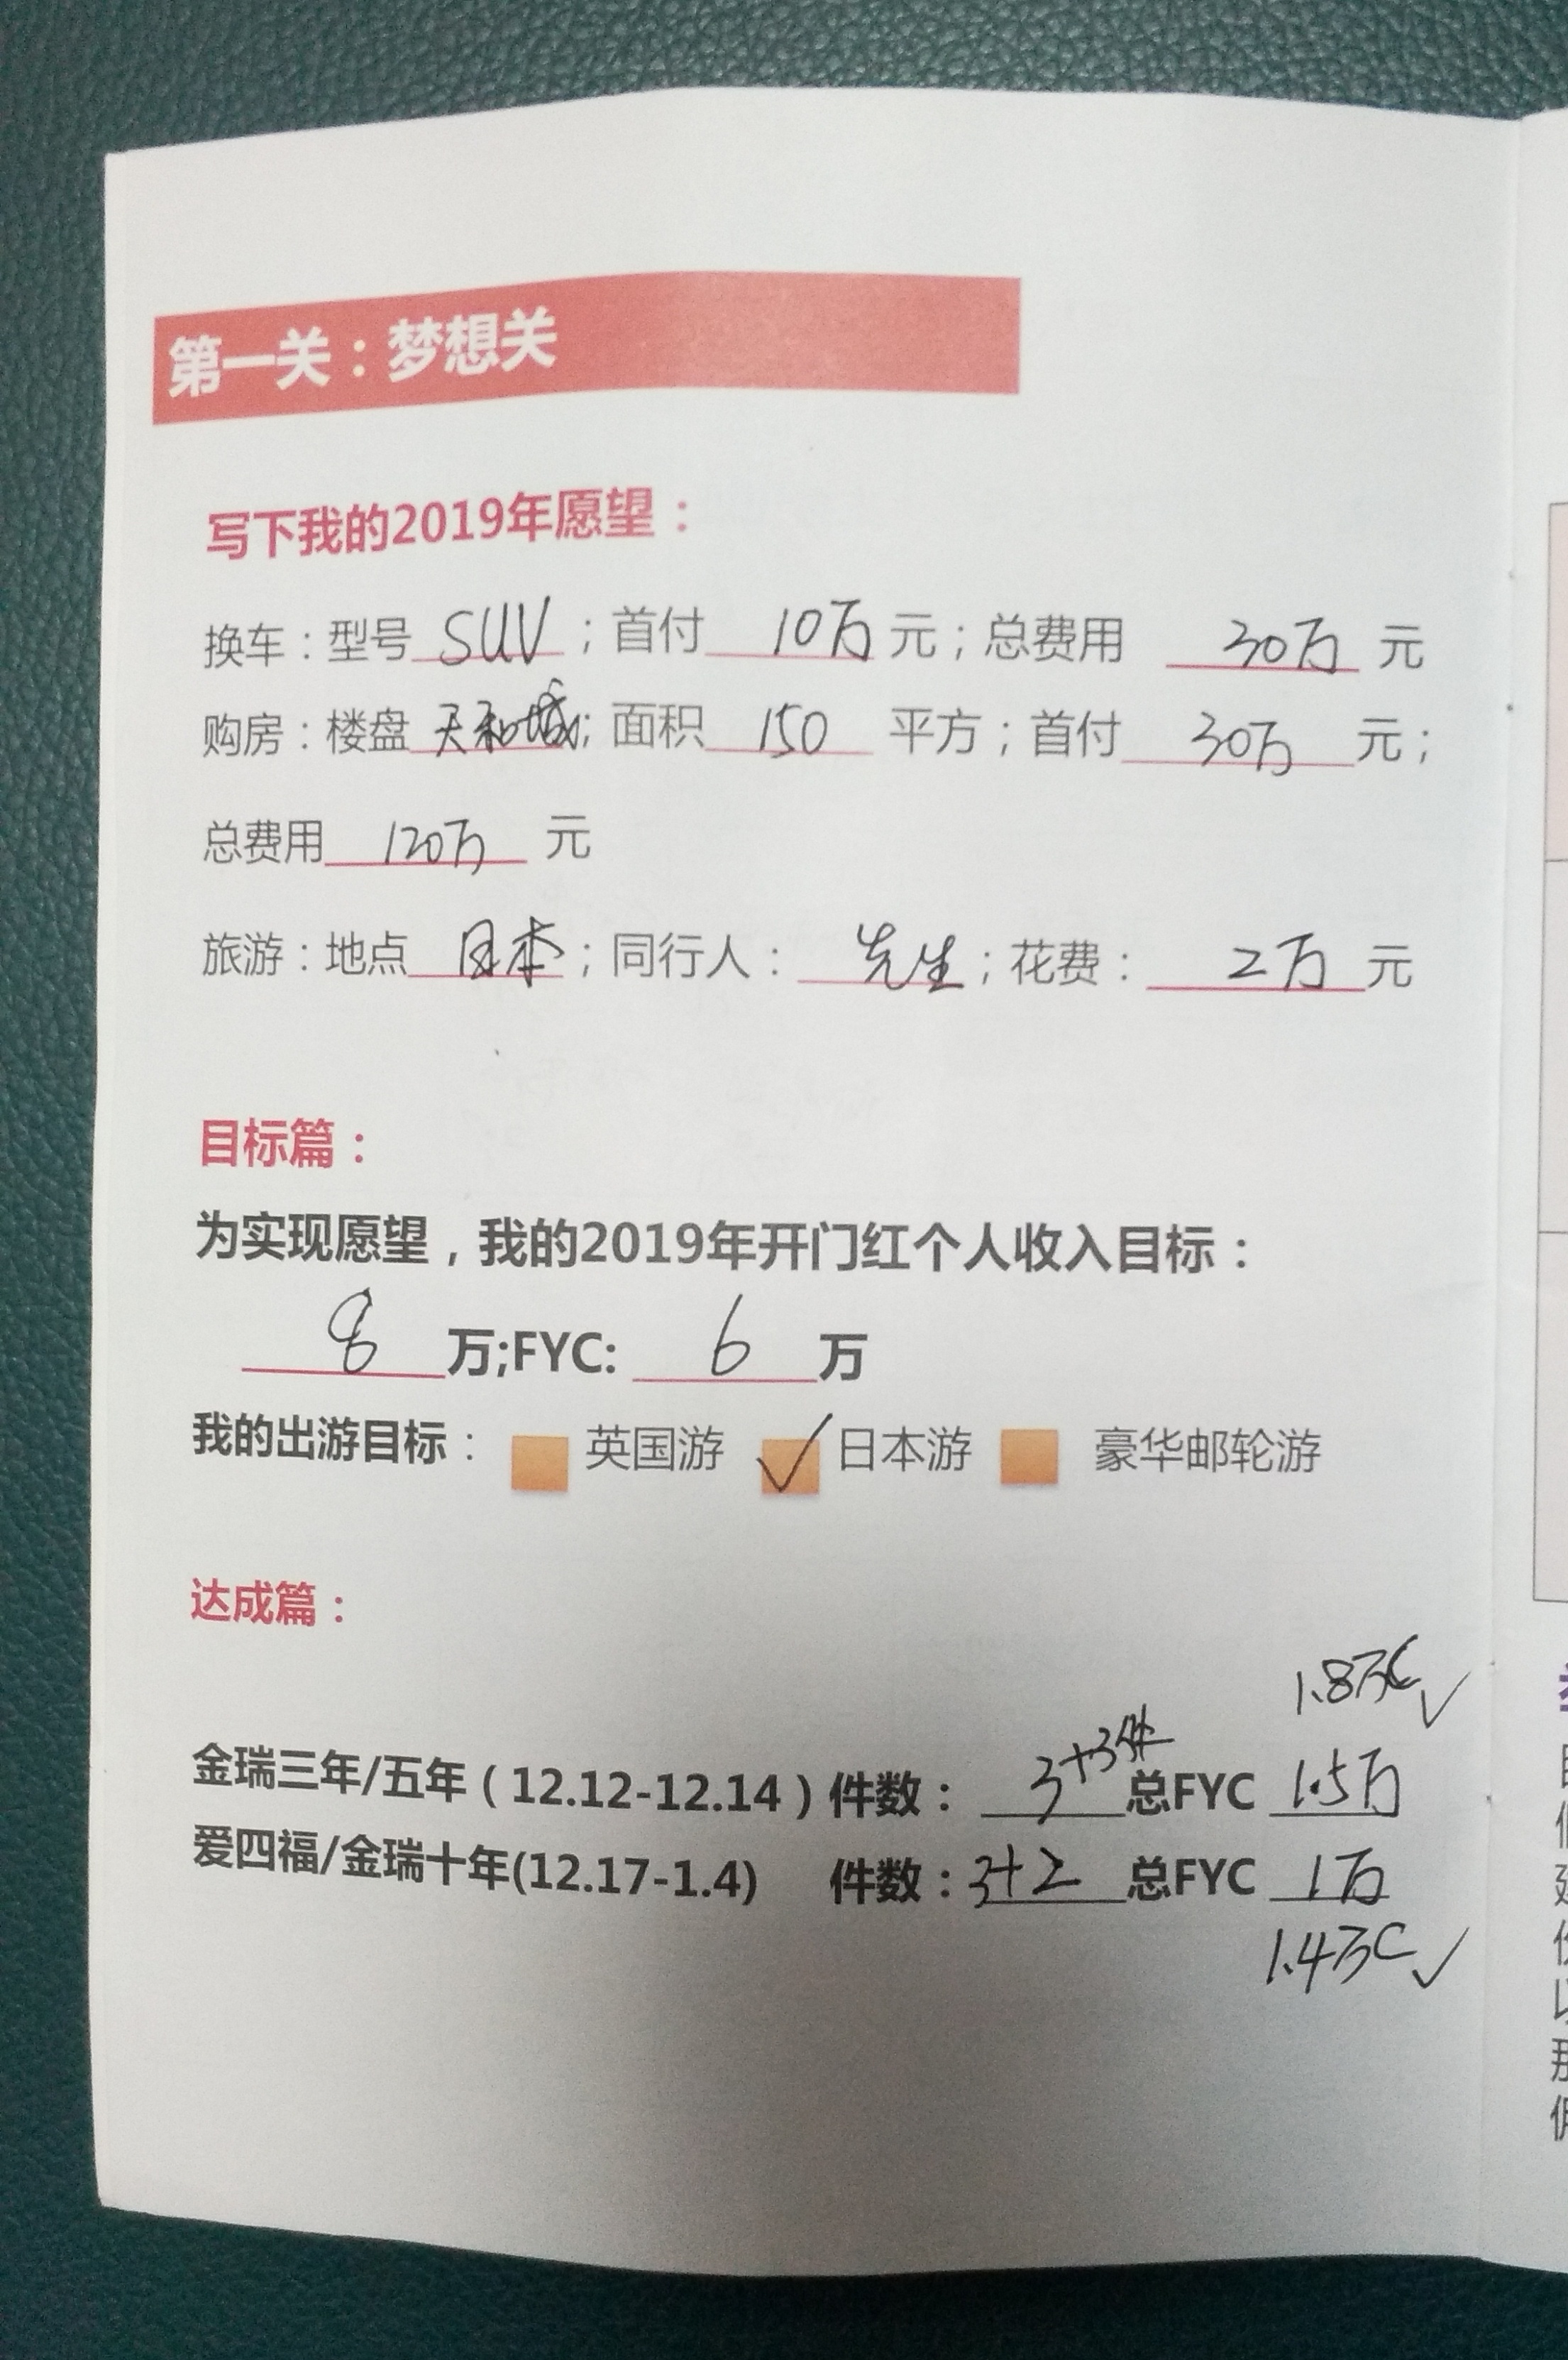 第一关：梦想关
写下我的2019年愿望：
换车：型号 SUV ；首付 10万 元；总费用 30万 元
购房：楼盘 天和城；面积 150 平方；首付 30万 元；
总费用 120万 元
旅游：地点 日本；同行人： 先生；花费： 2万 元
目标篇：
为实现愿望，我的2019年开门红个人收入目标：
8 万;FYC: 6 万
我的出游目标： 英国游 ✓ 日本游 豪华邮轮游
达成篇：
1.8万C ✓
金瑞三年/五年（12.12-12.14）件数： 3+3件 总FYC 1.5万
爱四福/金瑞十年(12.17-1.4) 件数：3+2 总FYC 1万
1.4万C ✓